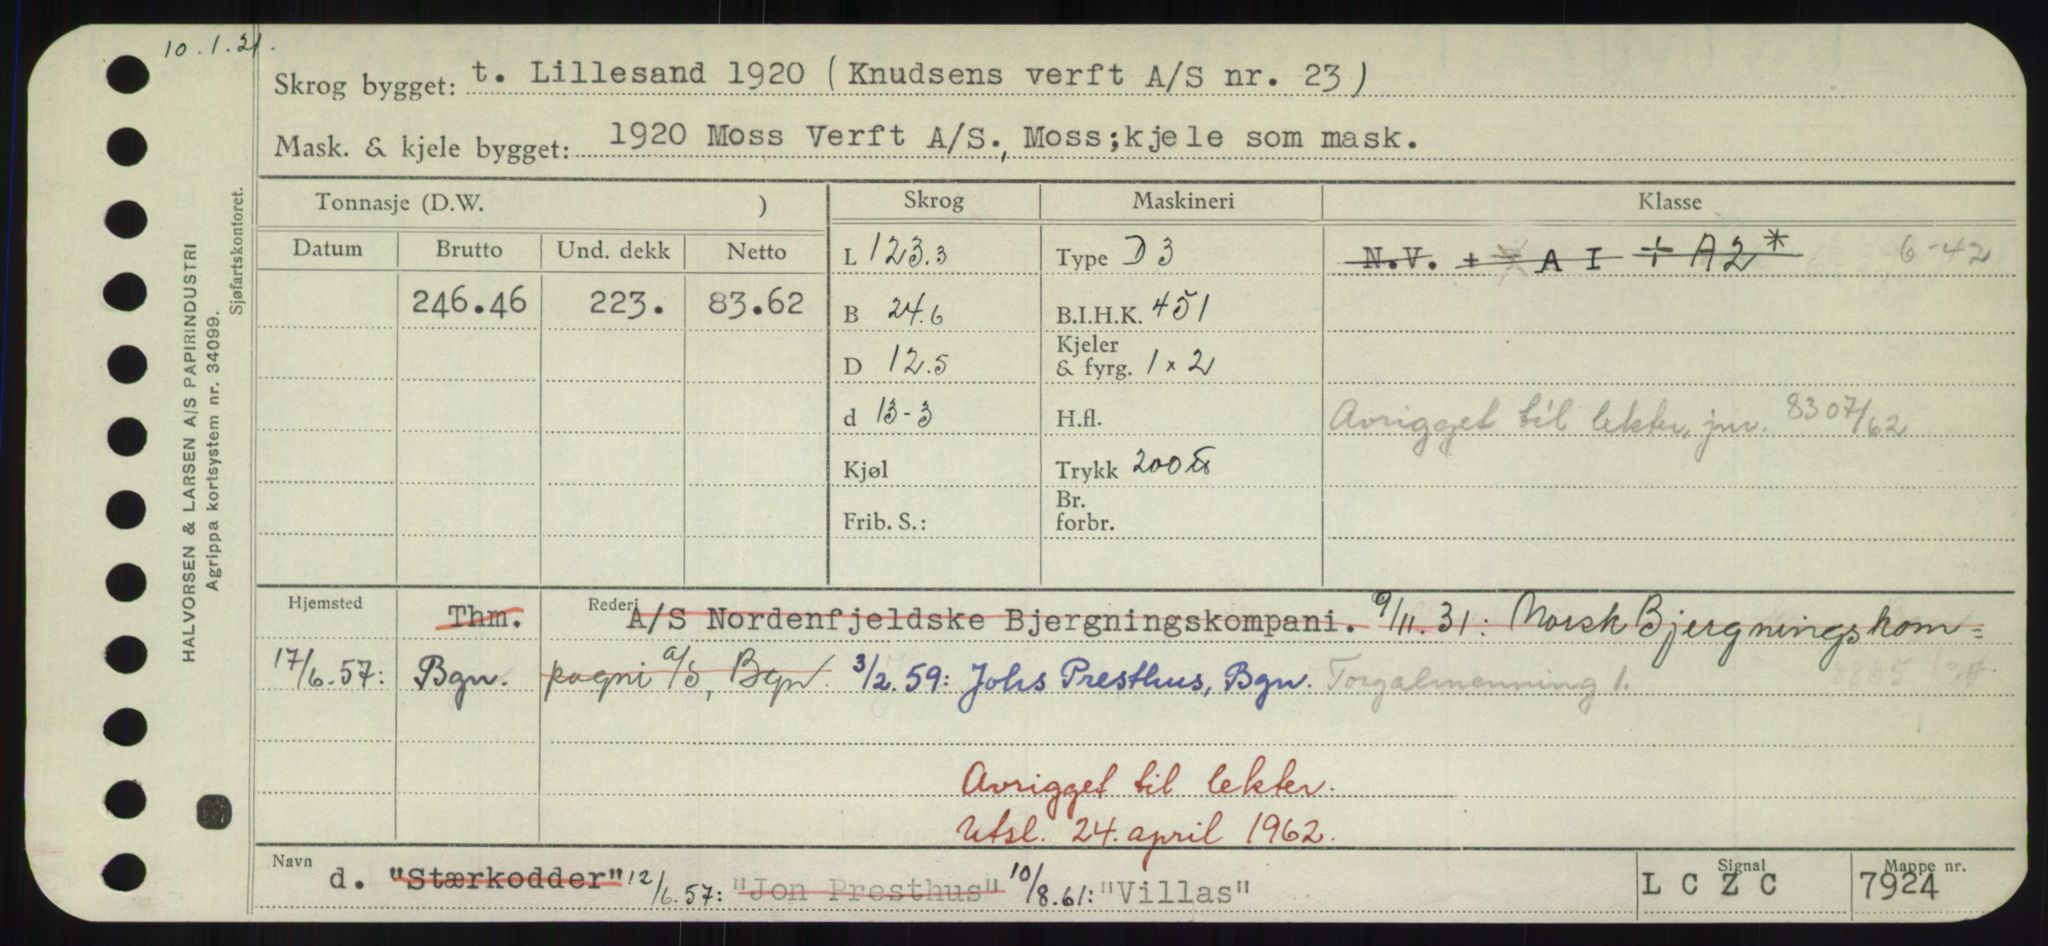 10.1.21.
Skrog bygget: t. Lillesand 1920 (Knudsens verft A/S nr. 23)
Mask. & kjele bygget: 1920 Moss Verft A/S., Moss;kjele som mask.
HALVORSEN & LARSEN A/S PAPIRINDUSTRI
Agrippa kortsystem nr. 34099.
Sjøfartskontoret.
Tonnasje (D.W. ) Skrog Maskineri Klasse
Datum Brutto Und. dekk Netto L 123.3 Type D 3 N.V. + A I ÷ A2* 6-42
246.46 223. 83.62 B 24.6 B.I.H.K. 451
D 12.5 Kjeler & fyrg. 1 x 2
d 13-3 H.fl. Avrigget til lekter, jnr. 8307/62
Kjøl Trykk 200
Frib. S.: Br. forbr.
Hjemsted Thm. Rederi A/S Nordenfjeldske Bjergningskompani. 9/11.31: Norsk Bjergningskom=
17/6.57: Bgn. pagni a/s, Bgn. 3/2.59: Johs Presthus, Bgn. Torgalmenning 1.
Avrigget til lekter.
Utsl. 24. april 1962.
Navn d. "Stærkodder" 12/6.57: "Jon Presthus" 10/8.61: "Villas" Signal L C Z C Mappe nr. 7924